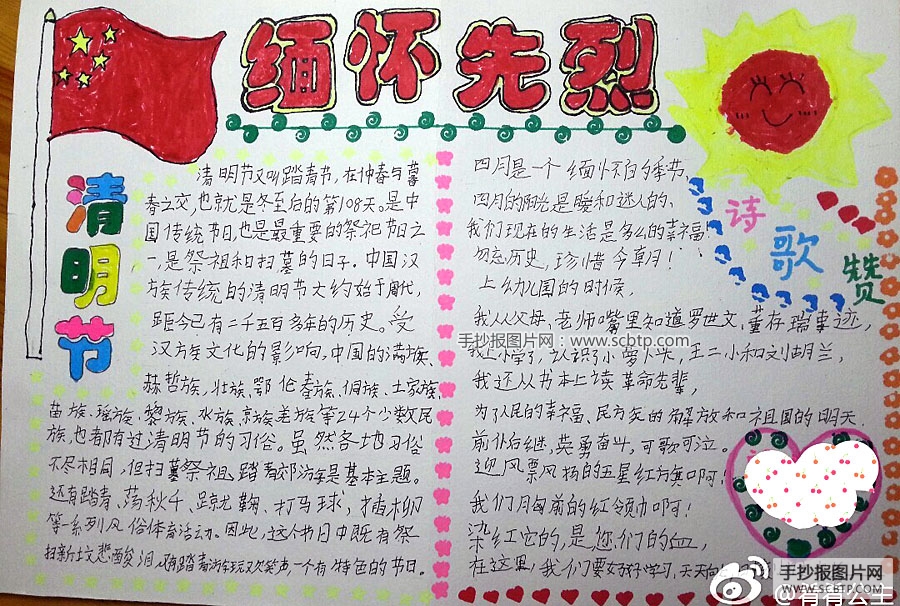 缅怀先烈
清明节
清明节又叫踏青节，在仲春与暮
春之交，也就是冬至后的第108天。是中
国传统节日，也是最重要的祭祀节日之
一，是祭祖和扫墓的日子。中国汉
族传统的清明节大约始于周代，
距今已有二千五百多年的历史。受
汉族文化的影响，中国的满族、
赫哲族，壮族、鄂伦春族、侗族、土家族、
苗族、瑶族、黎族、水族、京族、羌族等24个少数民
族，也都有过清明节的习俗。虽然各地习俗
不尽相同，但扫墓祭祖、踏青郊游是基本主题。
还有踏青、荡秋千、蹴鞠、打马球、插柳
等一系列风俗体育活动。因此，这个节日中既有祭
扫新坟悲酸泪，又有踏青游玩欢笑声，一个有特色的节日。
诗歌赞
四月是一个缅怀的季节，
四月的阳光是暖和迷人的、
我们现在的生活是多么的幸福！
勿忘历史，珍惜今朝！
上幼儿园的时候，
我从父母、老师嘴里知道罗世文、董存瑞事迹，
我上小学了，认识了小萝卜头，王二小和刘胡兰，
我还从书本上读革命先辈，
为了人民的幸福、民族的解放和祖国的明天
前仆后继，英勇奋斗，可歌可泣。
迎风飘扬的五星红旗啊！
我们胸前的红领巾啊！
染红它的，是您们的血，
在这里，我们要好好学习，天天向
手抄报图片网：www.scbtp.com
手抄报图片网
WWW.SCBTP.COM